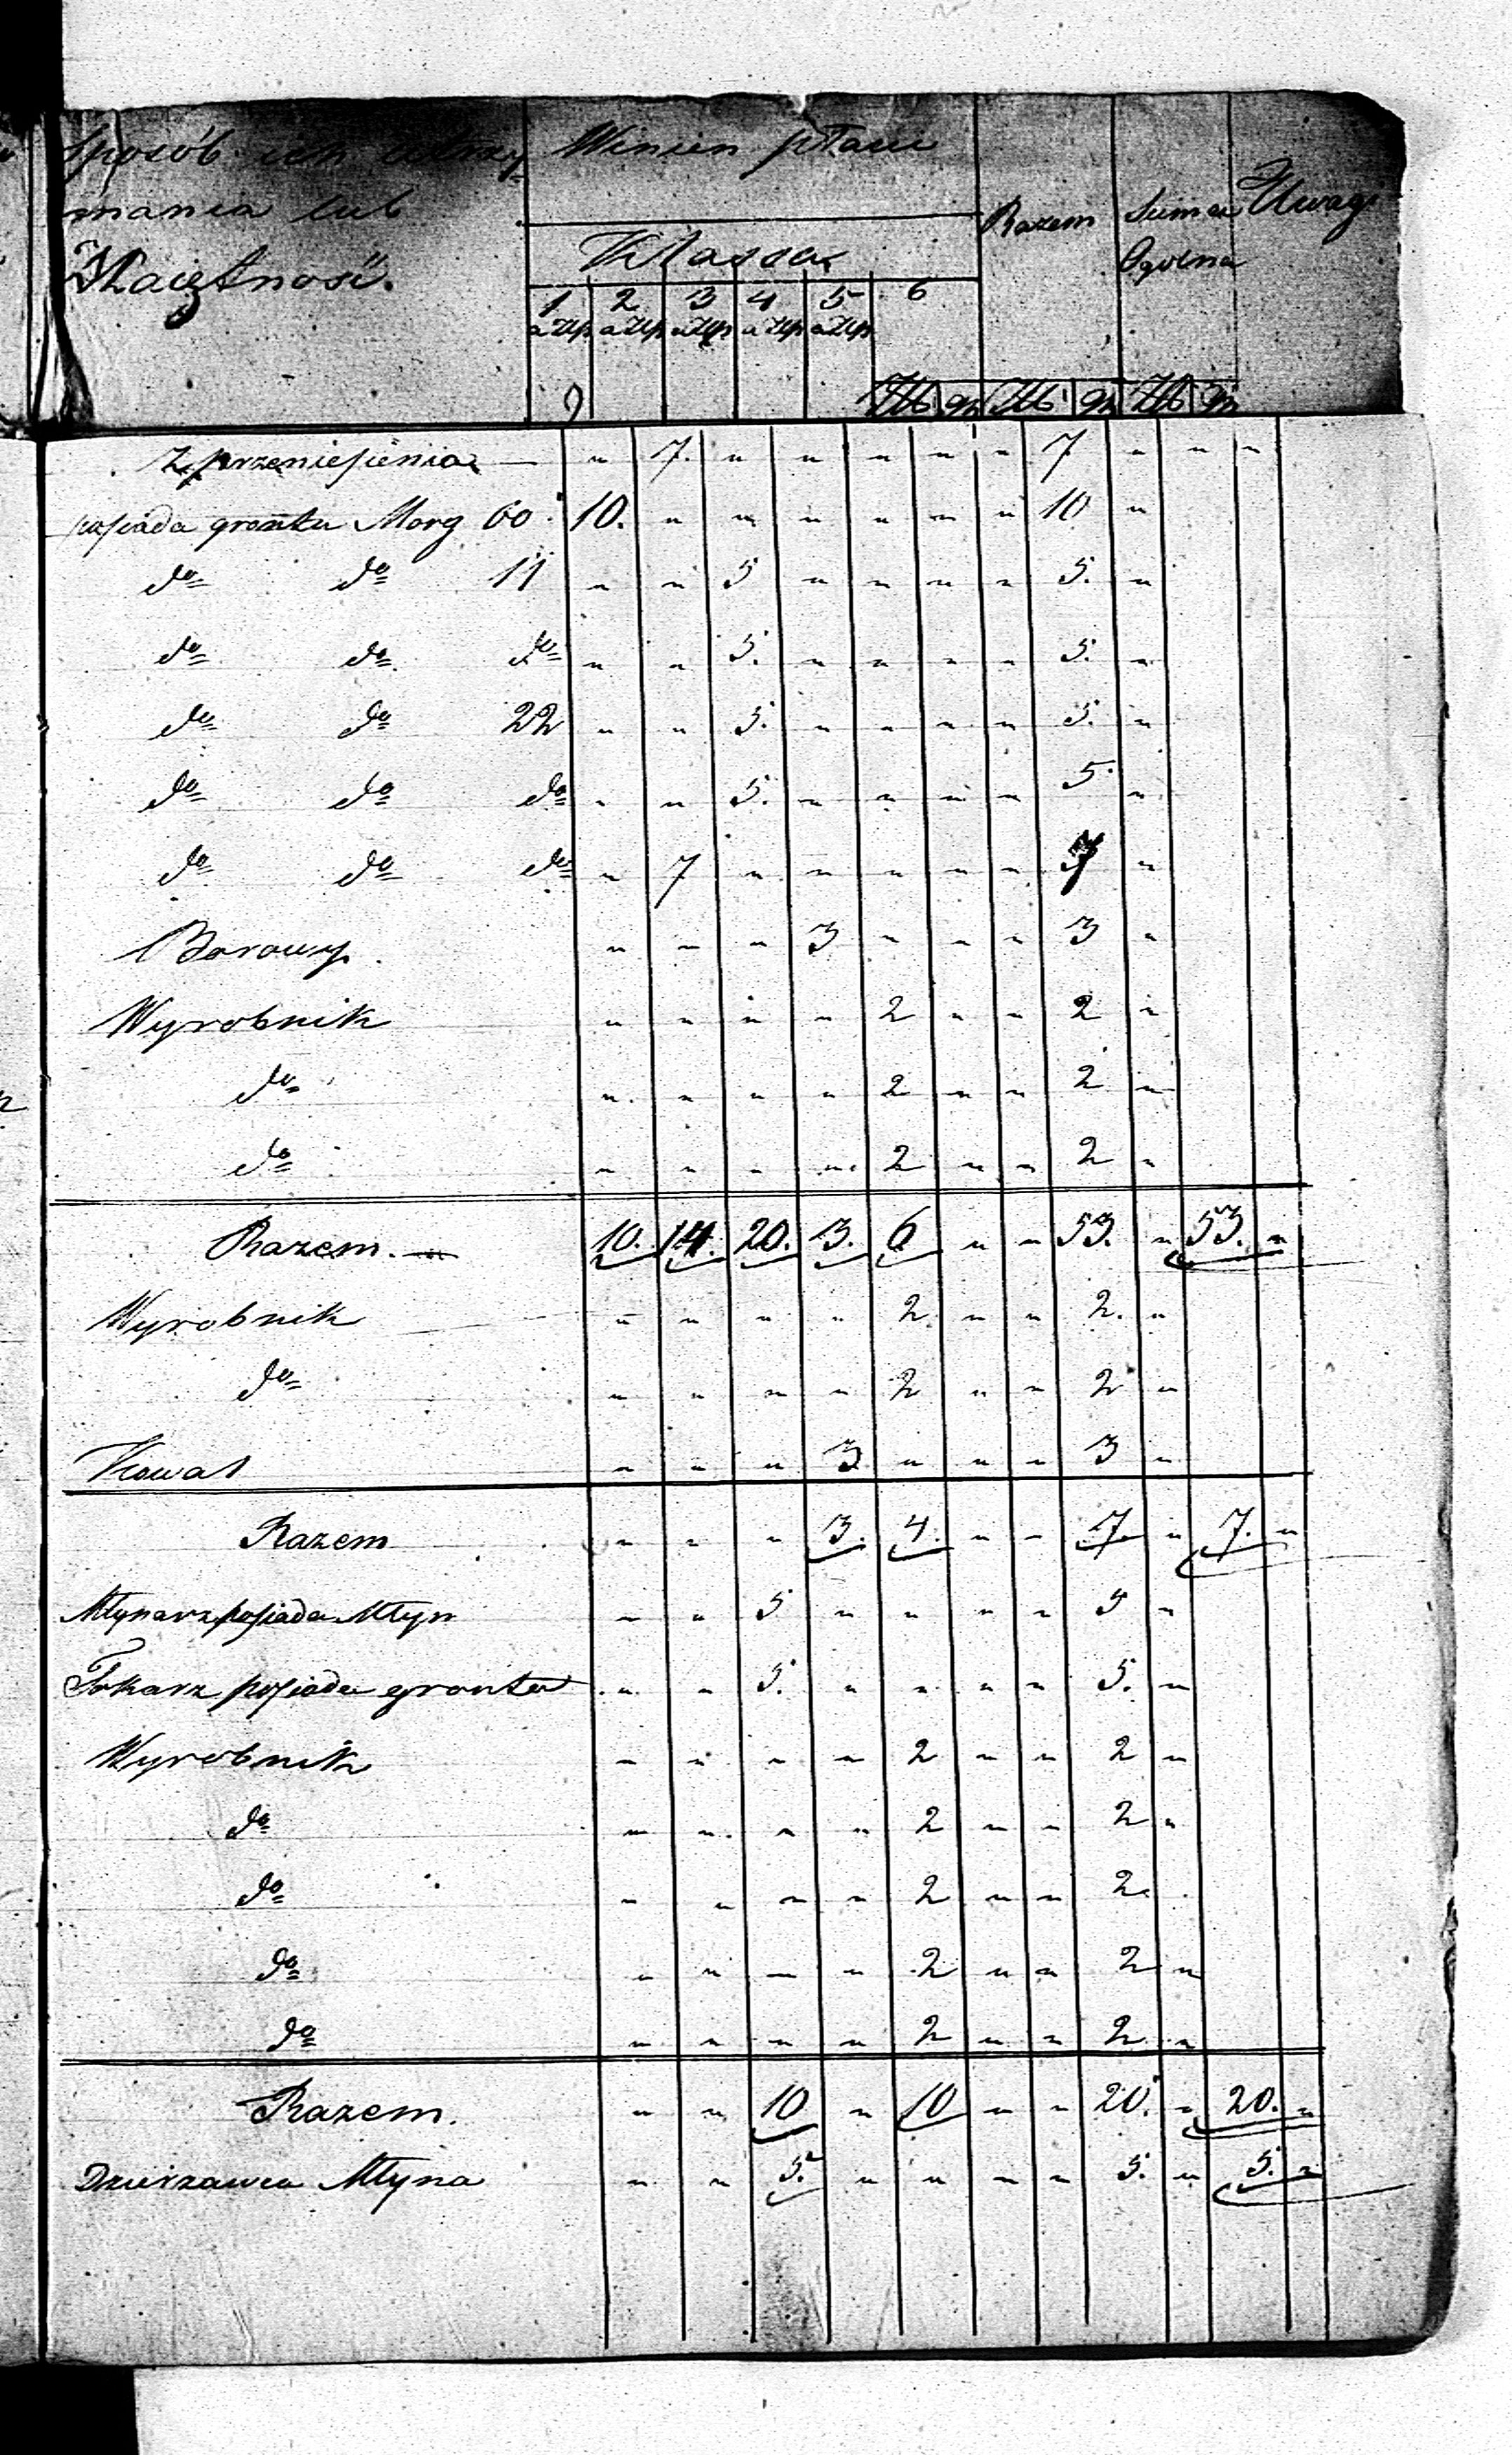 Sposób ich utrzy= Winien płacić
mania lub
Maiętnosć. Klassa Razem Summa Ogolna Uwagi
1 2 3 4 5 6
a Złp a Złp a Złp a Złp a Złp
Złt gr Złt gr Złt gr
Z przeniesienia — " 7. " " " " " 7 " " "
posiada grontu Morg 60. 10. " " " " " " 10 "
do do 11 " " 5 " " " " 5. "
do do do " " 5. " " " " 5. "
do do 22 " " 5. " " " " 5. "
do do do " " 5. " " " " 5. "
do do do " 7 " " " " " 7 "
Borowy. " " " 3 " " " 3 "
Wyrobnik " " " " 2 " " 2 "
do " " " " 2 " " 2 "
do " " " " 2 " " 2 "
Razem. — 10. 14. 20. 3. 6 " " 53. " 53. "
Wyrobnik " " " " 2. " " 2. "
do " " " " 2 " " 2 "
Kowal " " " 3 " " " 3 "
Razem " " " 3. 4. " " 7 " 7. "
Młynarz posiada Młyn " " 5 " " " " 5 "
Tokarz posiada grontu " " 5. " " " " 5. "
Wyrobnik " " " " 2 " " 2 "
do " " " " 2 " " 2 "
do " " " " 2 " " 2.
do " " " " 2 " " 2 "
do " " " " 2 " " 2 "
Razem. " " 10 " 10 " " 20. " 20. "
Dzierzawca Młyna " " 5. " " " " 5. " 5. "